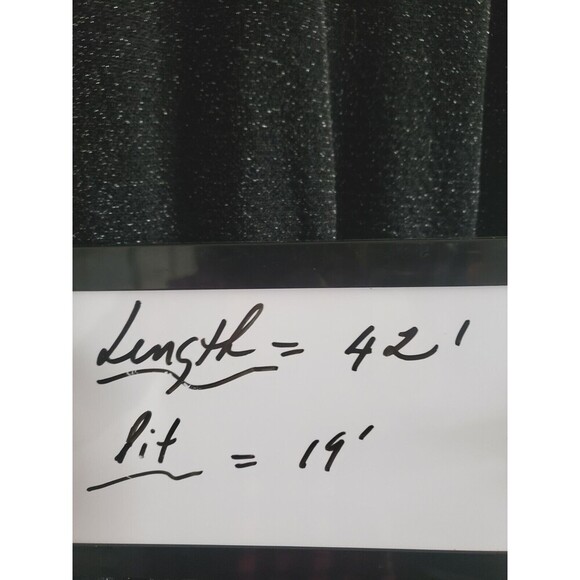 Length = 42'
Pit = 19'